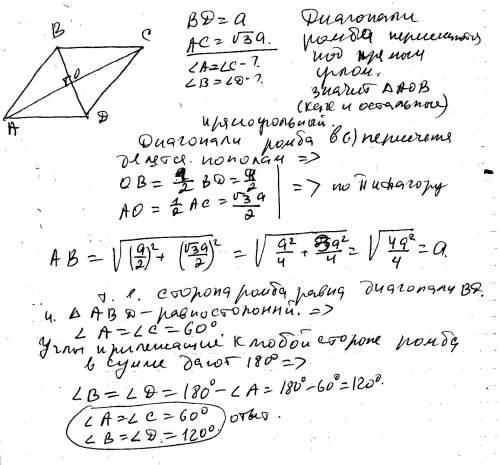 B C
O
A D
BD = a
AC = √3a.
∠A=∠C-?.
∠B=∠D-?.
Диагонали
ромба пересекаются
под прямым
углом.
значит ΔAOB
(как и остальные)
прямоугольный.
Диагонали ромба в (·) пересечения
делятся пополам =>
OB = 1/2 BD = a/2
AO = 1/2 AC = √3a/2
=> по Пифагору
AB = √((a/2)² + (√3a/2)²) = √(a²/4 + 3a²/4) = √(4a²/4) = a.
т. е. сторона ромба равна диагонали BD.
и Δ ABD - равносторонний. =>
∠A=∠C=60°
Углы прилежащие к любой стороне ромба
в сумме дают 180° =>
∠B=∠D=180°-∠A=180°-60°=120°.
∠A=∠C=60°
∠B=∠D=120° ответ.